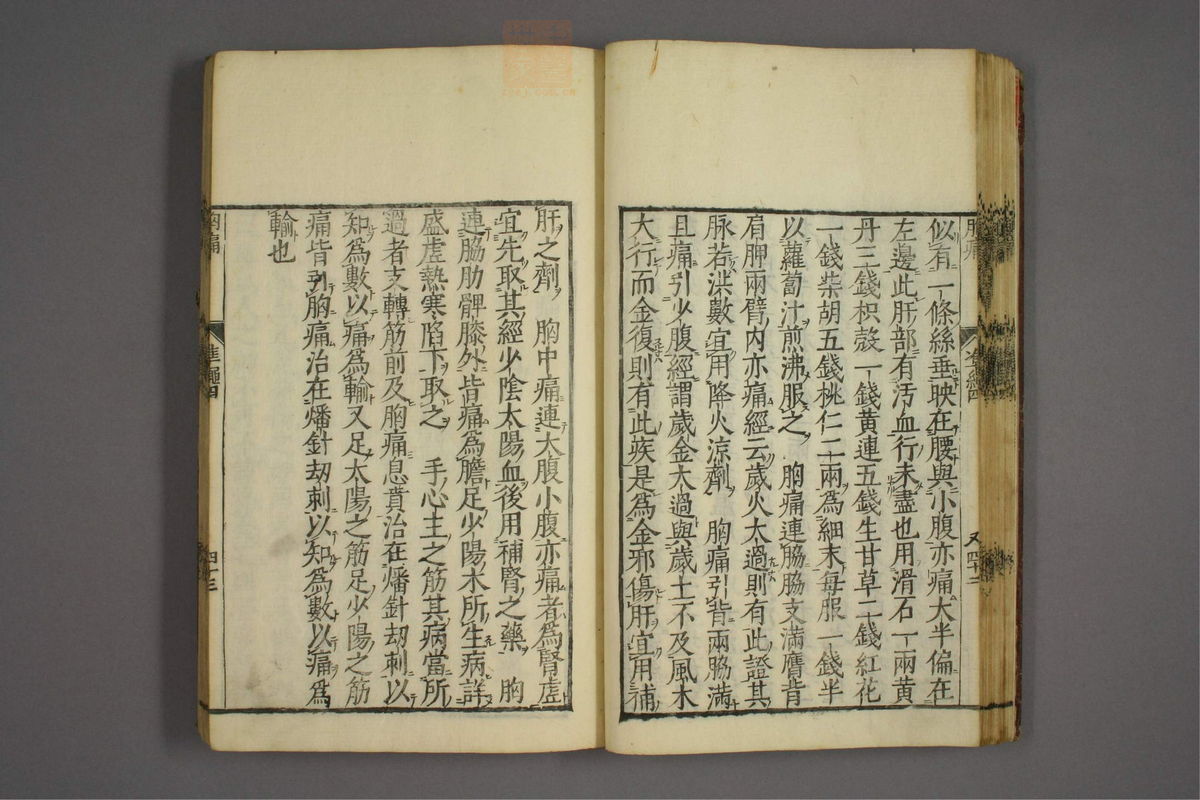 似有一條絲垂映在腰與小腹亦痛大半偏在
左邊此肝部有汚血行未盡也用滑石一兩黄
丹三錢枳殻一錢黄連五錢生甘草二錢紅花
一錢柴胡五錢桃仁二十兩爲細末每服一錢半
以蘿蔔汁煎沸服之　胸痛連脇脇支滿膺背
肩胛兩臂內亦痛經云歲火太過則有此證其
脉若洪數宜用降火涼劑　胸痛引背兩脇滿
且痛引少腹經謂歲金太過與歲土不及風木
大行而金復則有此疾是爲金邪傷肝宜用補
肝之劑　胸中痛連大腹小腹亦痛者爲腎虛
宜先取其經少陰太陽血後用補腎之藥　胸
連脇肋髀膝外皆痛爲膽足少陽木所生病詳
盛虛熱寒陷下取之　手心主之筋其病當所
過者支轉筋前及胸痛息賁治在燔針刼刺以
知爲數以痛爲輸又足太陽之筋足少陽之筋
痛皆引胸痛治在燔針刼刺以知爲數以痛爲
輸也
胸痛
準繩四
四十三